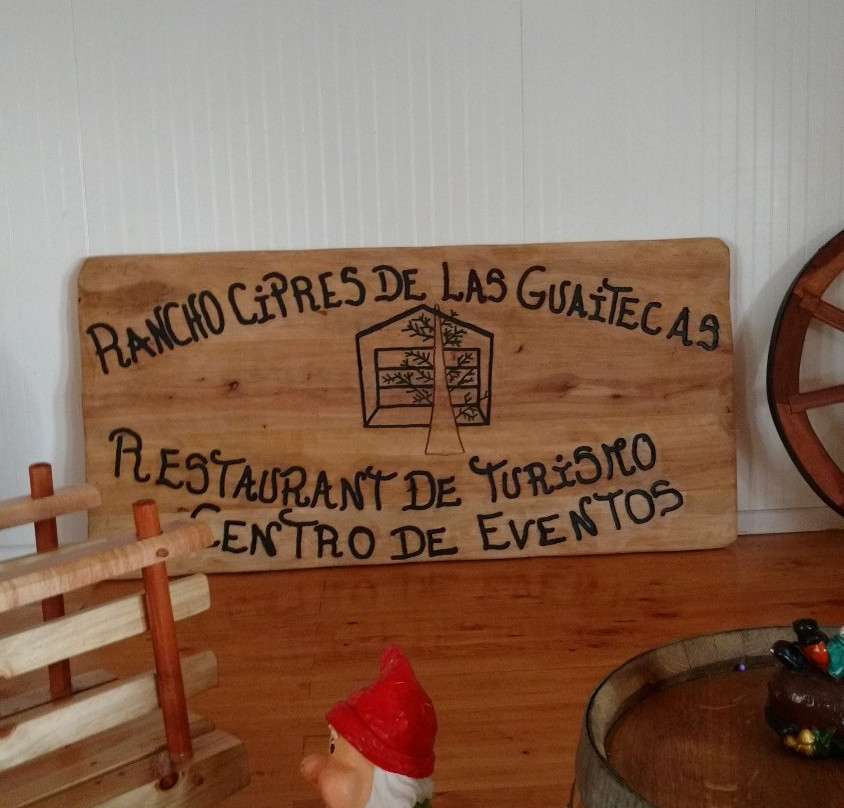 RANCHO CiPRES DE LAS GUAiTECAS
RESTAURANT DE TURiSMO
CENTRO DE EVENTOS